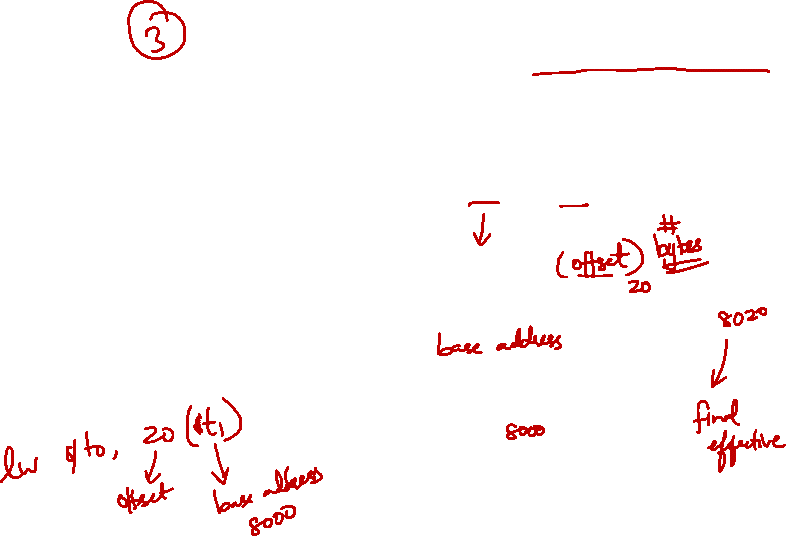 3
#
(offset) bytes
20
8020
base address
final
effective
8000
lw $t0, 20 ($t1)
offset
base address
8000